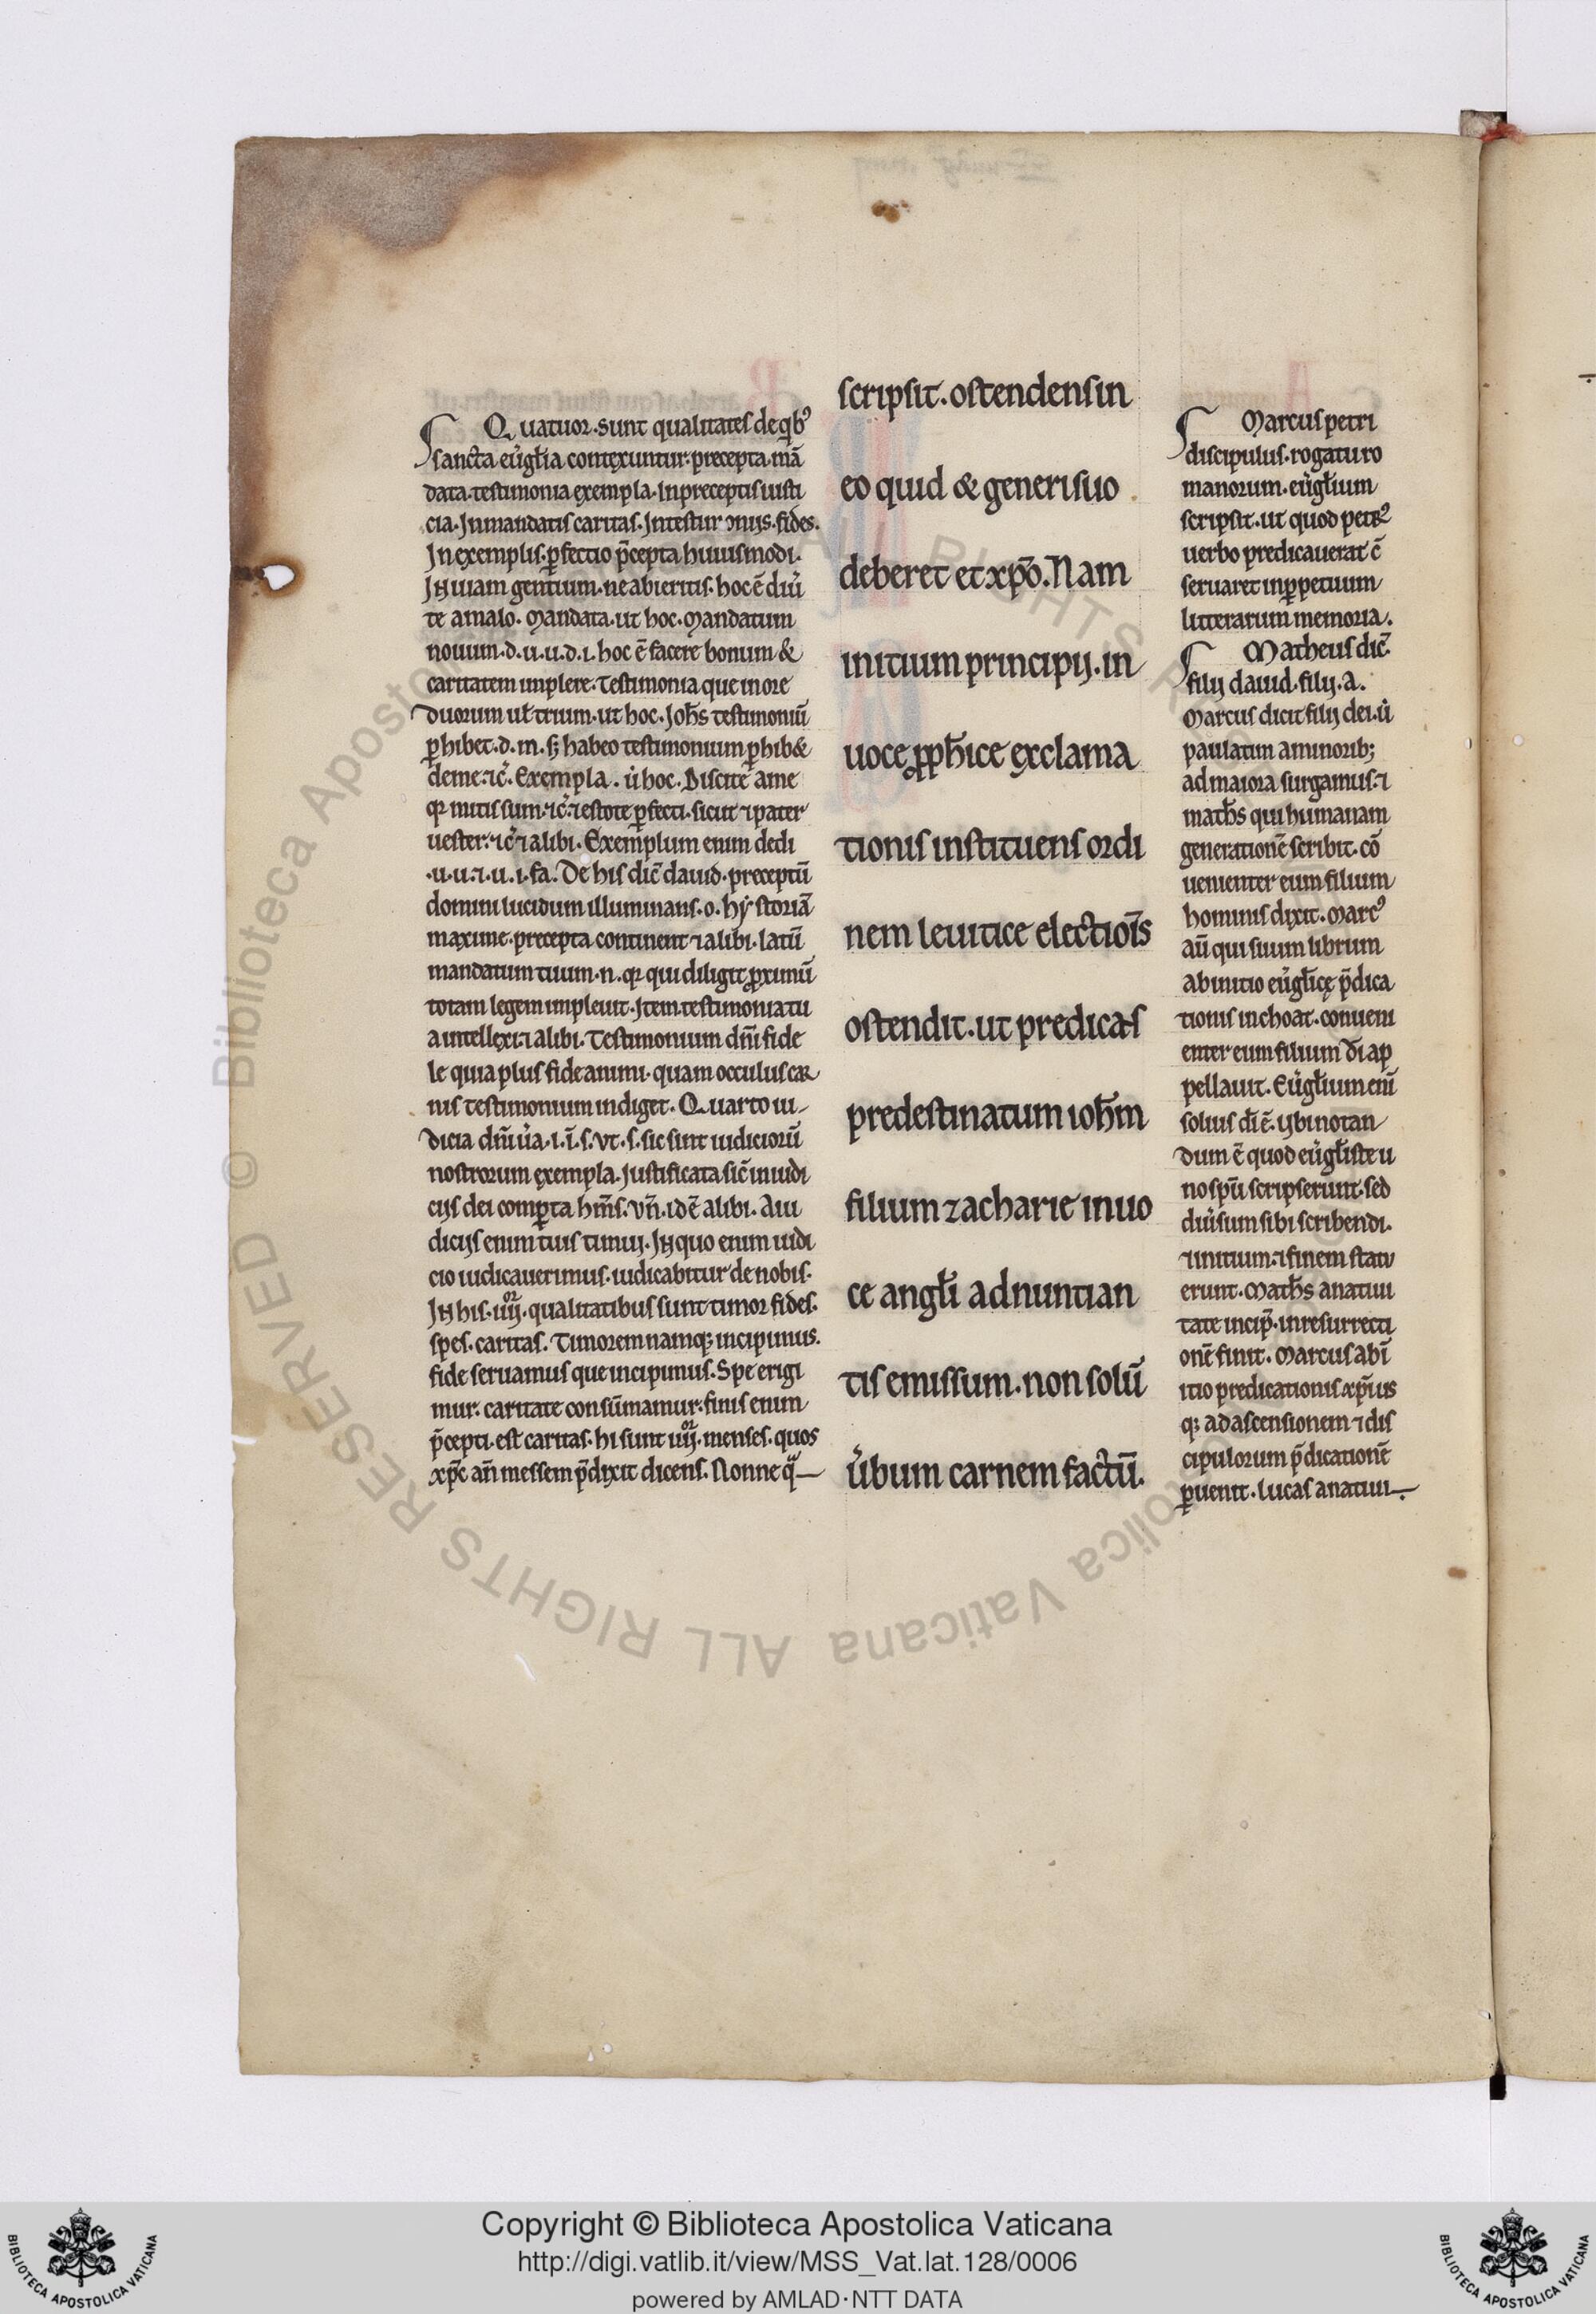 Quatuor·sunt qualitates de qb᷒
sancta eu̾gl̄ia contexuntur·precepta·mā
data·testimonia exempla·In preceptis iusti
cia·In mandatis caritas·
In exemplis·p̄fectio p̄cepta huiusmodi·
IN uiam gentium·ne abieritis·hoc ē diu̾
te a malo·Mandata·ut hoc·Mandatum
nouum·d·u·u·d·i·hoc ē facere bonum &
caritatem implere·Testimonia que in ore
duorum ul̄ trium·ut hoc·Joh̄s testimoniū
ꝑhibet·d·m·sꝫ habeo testimonium ꝑhib&
de me·⁊c̄·Exempla·u̾ hoc·Discite a me
qꝛ mitis sum·⁊c̄·⁊ estote ꝑfecti·sicut ⁊ pater
uester·⁊c̄ ⁊ alibi·Exemplum enim dedi
·u·u·⁊·u·i·fa·De his dic̄ dauid·preceptū
domini lucidum illuminans·o·hẏstoriā
maxime·precepta continent ⁊ alibi·latū
mandatum tuum·n·qꝛ qui diligit ꝓximū
totam legem impleuit·Item testimonia tu
a intellexi·⁊ alibi·Testimonium dn̄i fide
le quia plus fide animi·quam occulus car
nis testimonium indiget·Quarto iu
dicia dn̄i u̾a·i·ī·s·vt·s·sic sunt iudiciorū
nostrorum exempla·Justificata sic̄ in iudi
ciis dei comꝑta hm̄s·vn̄·idē alibi·A iu
diciis enim tuis timui·IN quo enim iudi
cio iudicauerimus·iudicabitur de nobis·
IN his·iiij·qualitatibus sunt timor fides·
spes·caritas·Timorem namqꝫ incipimus·
fide seruamus que incipimus·Spe erigi
mur·caritate consūmamur·finis enim
p̄cepti·est caritas·hi sunt iiij·menses·quos
xp̄c an̄ messem p̄dixit dicens·Nonne
scripsit·ostendens in
eo quid & generi suo
deberet et xp̄o·Nam
initium principij·in
uoce ꝓph̄ice exclama
tionis instituens ordi
nem leuitice electiōis
ostendit·ut predicas
predestinatum ioh̄m
filium zacharie in uo
ce angl̄i adnuntian
tis emissum·non solū
u̾bum carnem factū·
Marcus petri
discipulus·rogatu ro
manorum·eu̾gl̄ium
scripsit·ut quod petr᷒
uerbo predicauerat c̄
seruaret in ꝑpetuum
litterarum memoria·
Matheus dic̄·
filij dauid·filij·a·
Marcus dicit filij dei·u̾
paulatim a minorib;
ad maiora surgamus·⁊
math̄s qui humanam
generationē scribit·cō
uenienter eum filium
hominis dixit·Marc᷒
aū qui suum librum
ab initio eu̾gl̄ice p̄dica
tionis inchoat·conueni
enter eum filium dī ap
pellauit·Eu̾gl̄ium enī
solius dī ē·ybi notan
dum ē quod eu̾gl̄iste u
no spū scripserunt·sed
diu̾sum sibi scribendi·
⁊ initium·⁊ finem statu
erunt·Math̄s a natiui
tate incip̄·in resurrecti
onē finit·Marcus ab in̄
itio predicationis xp̄i us
qꝫ ad ascensionem ⁊ dis
cipulorum p̄dicationē
ꝑuenit·Lucas a natiui
Copyright © Biblioteca Apostolica Vaticana
http://digi.vatlib.it/view/MSS_Vat.lat.128/0006
powered by AMLAD·NTT DATA
BIBLIOTECA APOSTOLICA VATICANA
BIBLIOTECA APOSTOLICA VATICANA
© Biblioteca Apostolica Vaticana ALL RIGHTS RESERVED